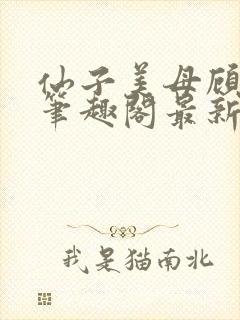 仙子美母顾
筆趣閣最新
我是猫南北